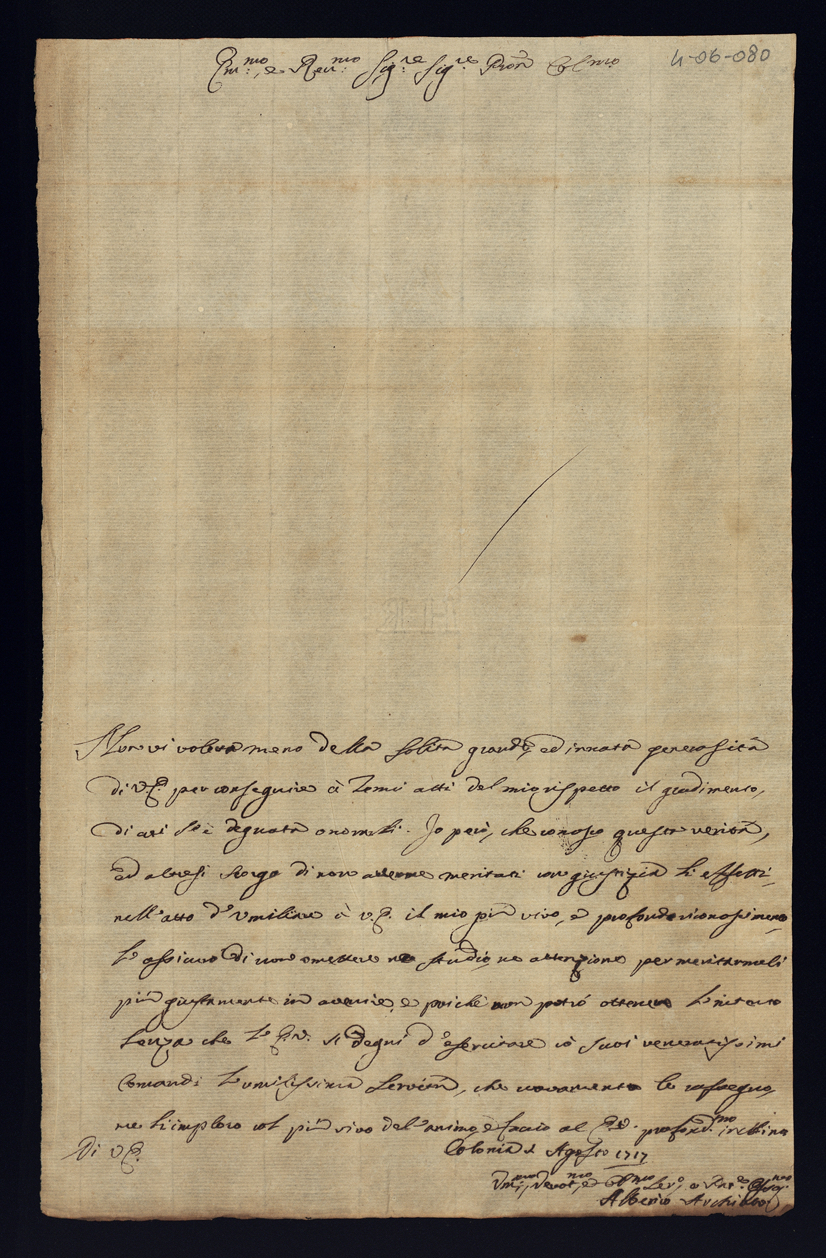 Em.mo, e Rev.mo Sig.re Sig.re Pron Col.mo
4-06-080
Non vi voleva meno della solita grande, ed innata generosità
di V.E. per conseguire à temi atti del mio rispetto il gradimento,
di cui s'è degnata onorarli. Io però, che conosco questa verità,
ed altresì scorgo di non averne meritati con giustizia li effetti,
nell'atto d'umiliare à V.E. il mio più vivo, e profondo riconoscimento
l'assicuro di non omettere ne studio, ne attenzione per meritarmeli
più giustamente in avenire, e poiche non potrò ottenere l'intento
senza che l'E.V. si degni d'esercitare co suoi veneratissimi
Comandi l'umilissima servitù, che novamente le rassegno,
ne l'imploro col più vivo dell'animo, e faccio al E.V. profond.mo inchino
Di V.E. Colonia Agosto 1717
Um.mo, Devot.mo, ed Obl.mo Ser.
Alberico Archinto